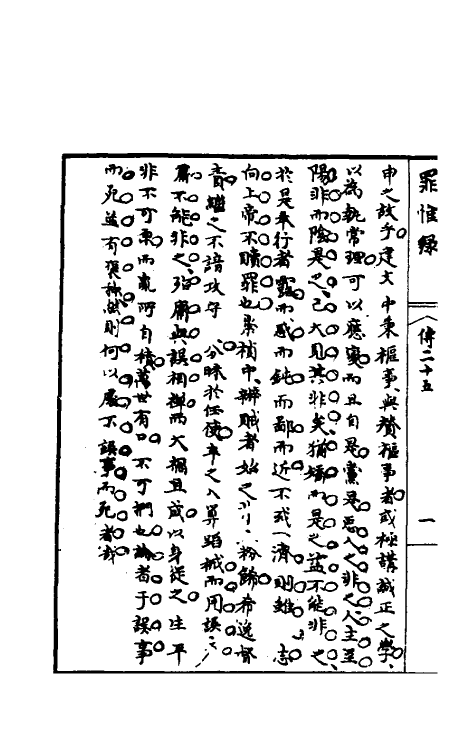 罪惟錄
傳二十五
一
申之故乎建文中秉樞事與贊樞事者或極講誠正之學
以為執常理可以應變而且自是黨是惡人之非之人主至
陽非而陰是之己大見其非矣猶矯而是之益不能非之
於是奉行者露而惑而鈍而鄙而近不或一濟則雖 志
向上帝不贖罪也累禍中辦賊者始之 粉飾希逸督
責繼之不諳攻守 分昧於任使卒之入算蹈機而用誤
屬不能非之殆屬與誤相禪而大禍且或以身從之生平
非不可乘而竟阿自積萬世有口不可捫也論者于誤事
而死益有褒 則何以處不誤事而死者哉